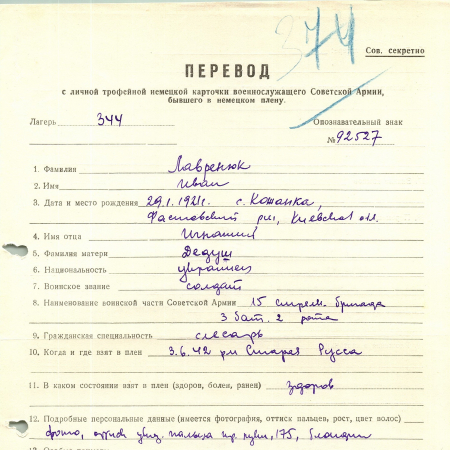 374
Сов. секретно
ПЕРЕВОД
с личной трофейной немецкой карточки военнослужащего Советской Армии,
бывшего в немецком плену.
Лагерь 344 Опознавательный знак
№ 92527
1. Фамилия Лавренюк
2. Имя Иван
3. Дата и место рождения 29.1.1921г. с. Кошанка,
Фастовский р-н, Киевская обл.
4. Имя отца Игнатий
5. Фамилия матери Дедуш
6. Национальность украинец
7. Воинское звание солдат
8. Наименование воинской части Советской Армии 15 стрелк. бригада
3 бат. 2 рота
9. Гражданская специальность слесарь
10. Когда и где взят в плен 3.6.42 рн Старая Русса
11. В каком состоянии взят в плен (здоров, болен, ранен) здоров
12. Подробные персональные данные (имеется фотография, оттиск пальцев, рост, цвет волос)
фото, оттиск указ. пальца пр. руки, 175, блондин